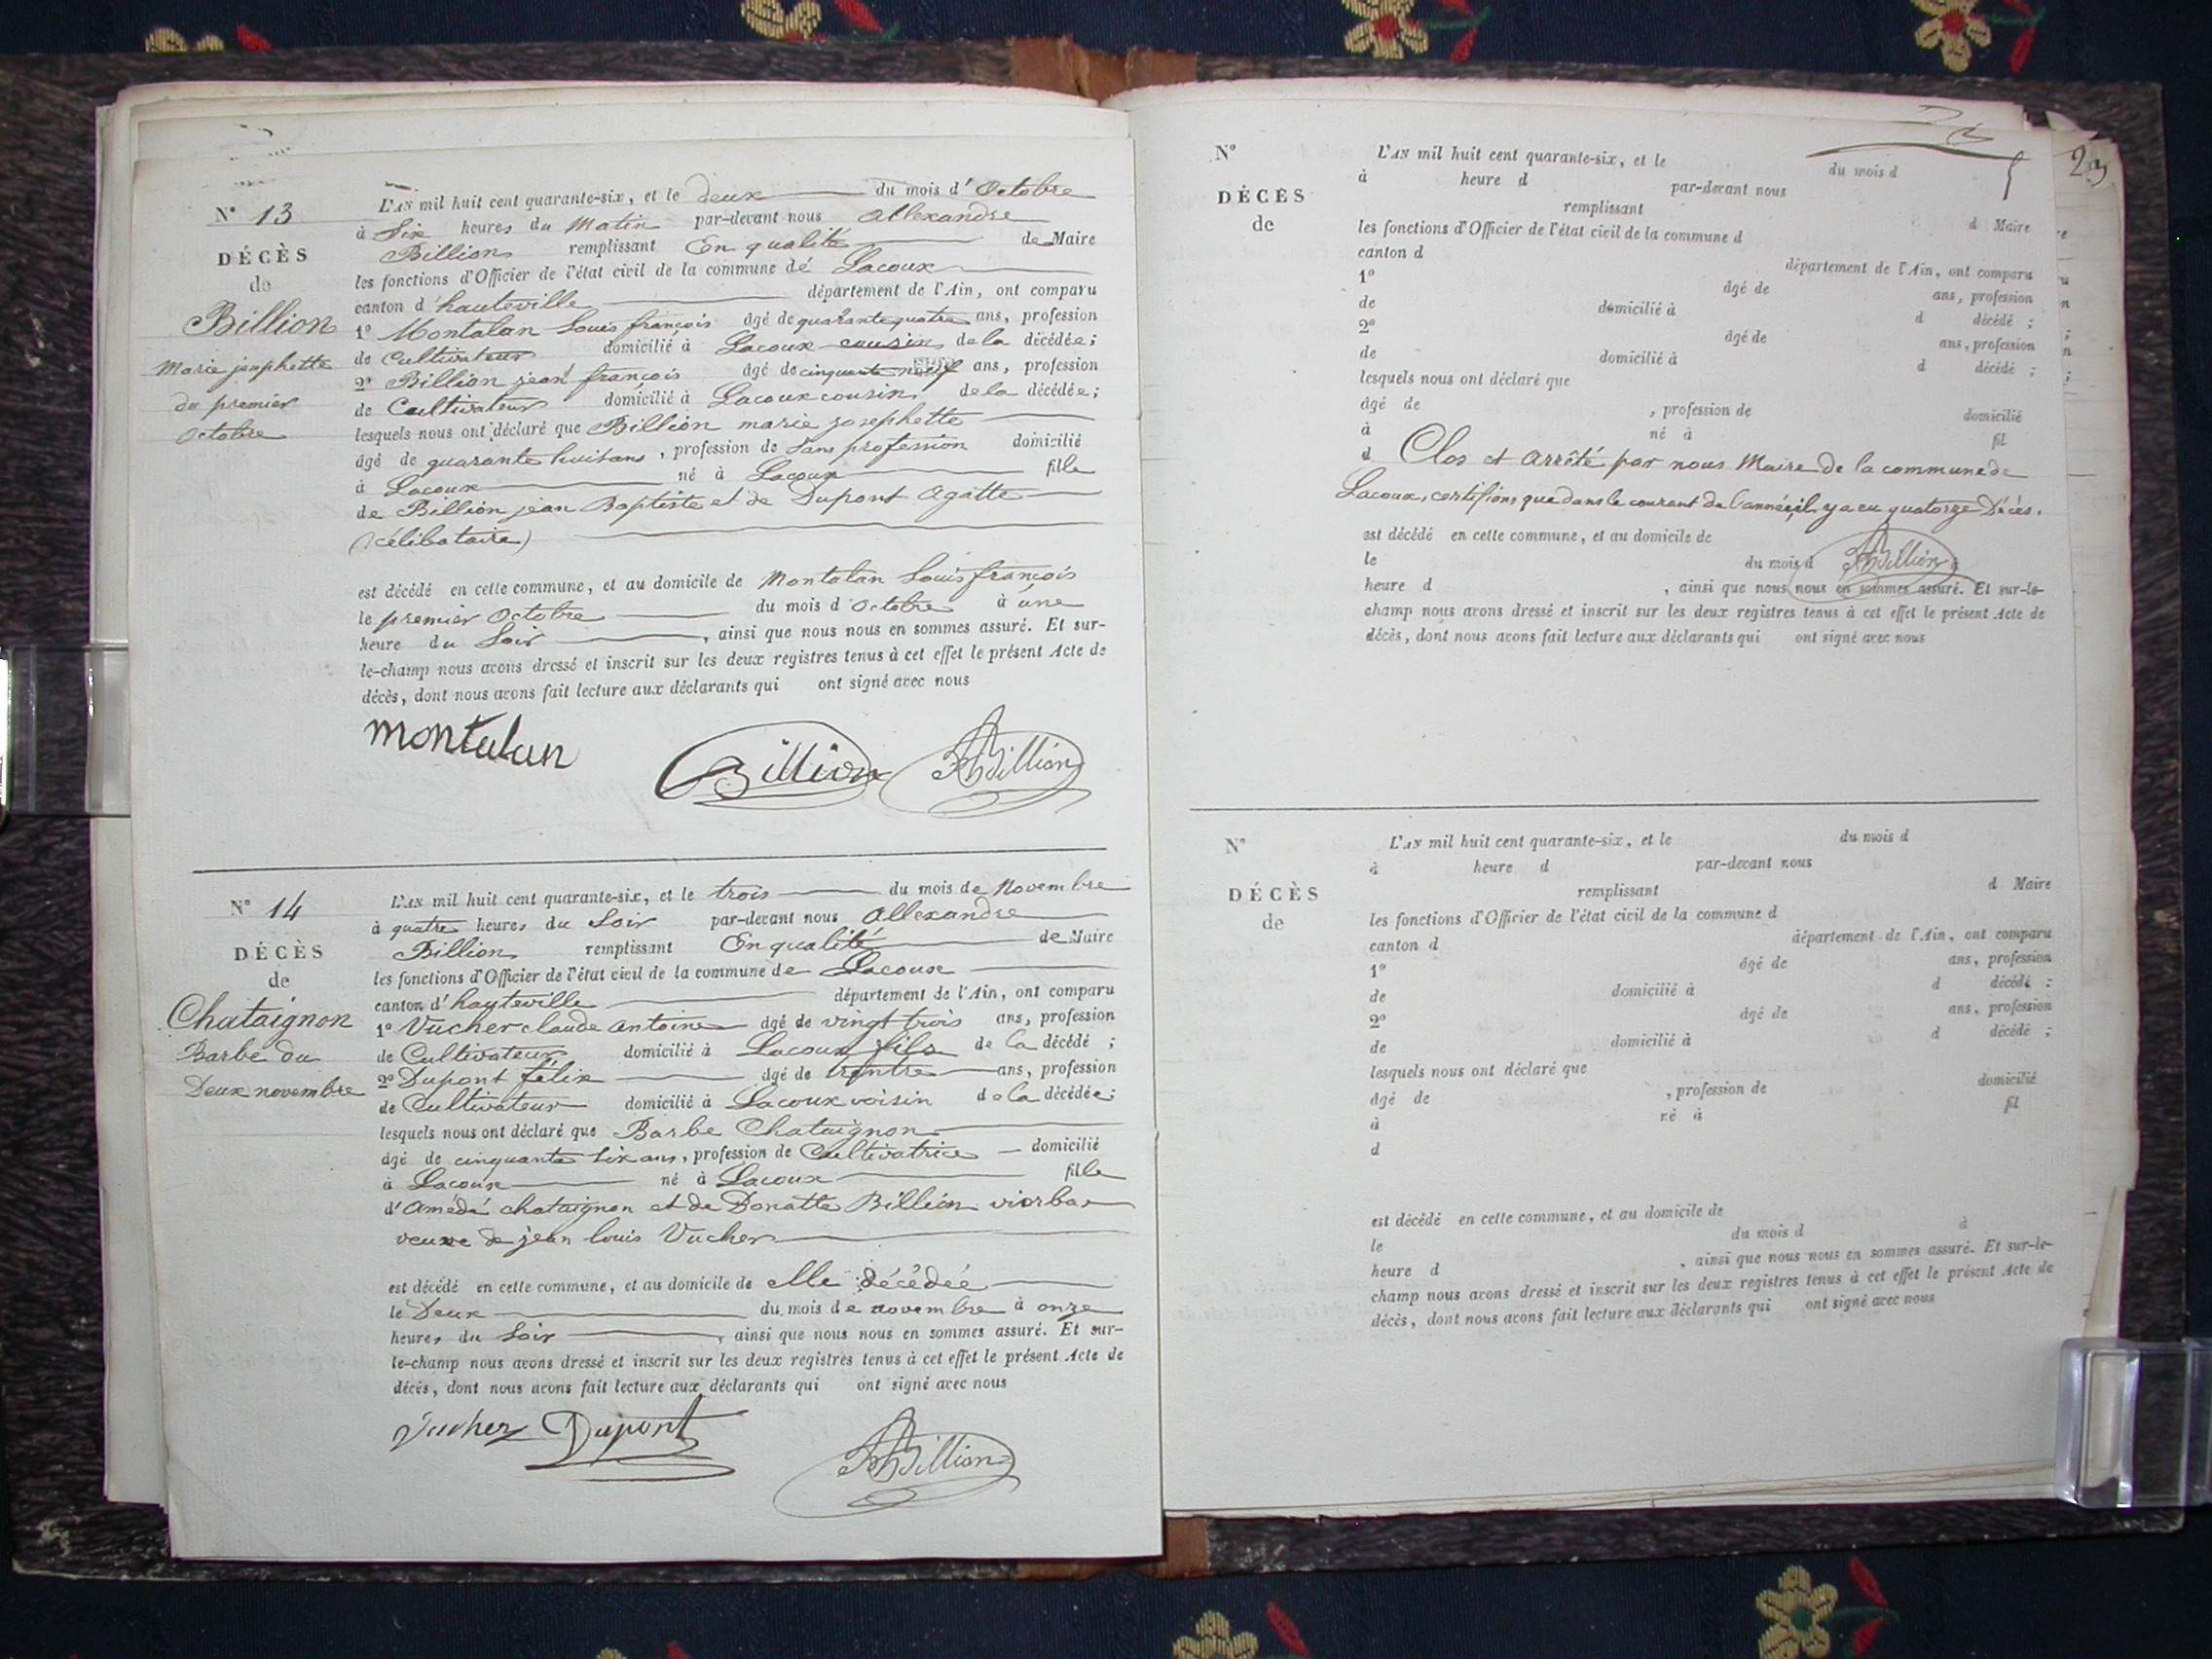 N° 13
DÉCÈS
de
Billion
Marie josephette
du premier
Octobre
L'AN mil huit cent quarante-six, et le deux du mois d' Octobre
à Six heures du Matin par-devant nous Allexandre
Billion remplissant En qualité de Maire
les fonctions d'Officier de l'état civil de la commune de Lacoux
canton d'hauteville département de l'Ain, ont comparu
1° Montalan Louis françois âgé de quarante quatre ans, profession
de Cultivateur domicilié à Lacoux cousin de la décédée;
2° Billion jean françois âgé de cinquante neuf ans, profession
de Cultivateur domicilié à Lacoux cousin de la décédée;
lesquels nous ont déclaré que Billion marie josephette
âgé de quarante huit ans, profession de Sans profession domicilié
à Lacoux né à Lacoux fille
de Billion jean Baptiste et de Dupont Agatte
(célibataire)
est décédé en cette commune, et au domicile de Montalan Louis françois
le premier Octobre du mois d'Octobre à une
heure du Soir, ainsi que nous nous en sommes assuré. Et sur-
le-champ nous avons dressé et inscrit sur les deux registres tenus à cet effet le présent Acte de
décès, dont nous avons fait lecture aux déclarants qui ont signé avec nous
montalan Billion ABillion
N° 14
DÉCÈS
de
Chataignon
Barbe du
Deux novembre
L'AN mil huit cent quarante-six, et le trois du mois de Novembre
à quatre heures du Soir par-devant nous Allexandre
Billion remplissant En qualité de Maire
les fonctions d'Officier de l'état civil de la commune de Lacoux
canton d'hauteville département de l'Ain, ont comparu
1° Vucher claude Antoine âgé de vingt trois ans, profession
de Cultivateur domicilié à Lacoux fils de la décédé;
2° Dupont félix âgé de trentre ans, profession
de Cultivateur domicilié à Lacoux voisin de la décédée;
lesquels nous ont déclaré que Barbe Chataignon
âgé de cinquante Six ans, profession de Cultivatrice domicilié
à Lacoux né à Lacoux fille
d'Amédé chataignon et de Donatte Billion viorba
veuve de jean louis Vucher
est décédé en cette commune, et au domicile de elle décédée
le Deux du mois de novembre à onze
heures du Soir, ainsi que nous nous en sommes assuré. Et sur-
le-champ nous avons dressé et inscrit sur les deux registres tenus à cet effet le présent Acte de
décès, dont nous avons fait lecture aux déclarants qui ont signé avec nous
Vucher Dupont
ABillion
23
N°
DÉCÈS
de
L'AN mil huit cent quarante-six, et le du mois d
à heure d par-devant nous
remplissant d Maire
les fonctions d'Officier de l'état civil de la commune d
canton d département de l'Ain, ont comparu
1° âgé de ans, profession
de domicilié à d décédé;
2° âgé de ans, profession
de domicilié à d décédé;
lesquels nous ont déclaré que
âgé de , profession de domicilié
à né à fil
d Clos et Arrêté par nous Maire de la commune de
Lacoux, certifions que dans le courant de l'année, il y a eu quatorze Décès.
est décédé en cette commune, et au domicile de
le du mois d ABillion
heure d , ainsi que nous nous en sommes assuré. Et sur-le-
champ nous avons dressé et inscrit sur les deux registres tenus à cet effet le présent Acte de
décès, dont nous avons fait lecture aux déclarants qui ont signé avec nous
N°
DÉCÈS
de
L'AN mil huit cent quarante-six, et le du mois d
à heure d par-devant nous
remplissant d Maire
les fonctions d'Officier de l'état civil de la commune d
canton d département de l'Ain, ont comparu
1° âgé de ans, profession
de domicilié à d décédé;
2° âgé de ans, profession
de domicilié à d décédé;
lesquels nous ont déclaré que
âgé de , profession de domicilié
à né à fil
d
est décédé en cette commune, et au domicile de
le du mois d à
heure d , ainsi que nous nous en sommes assuré. Et sur-le-
champ nous avons dressé et inscrit sur les deux registres tenus à cet effet le présent Acte de
décès, dont nous avons fait lecture aux déclarants qui ont signé avec nous